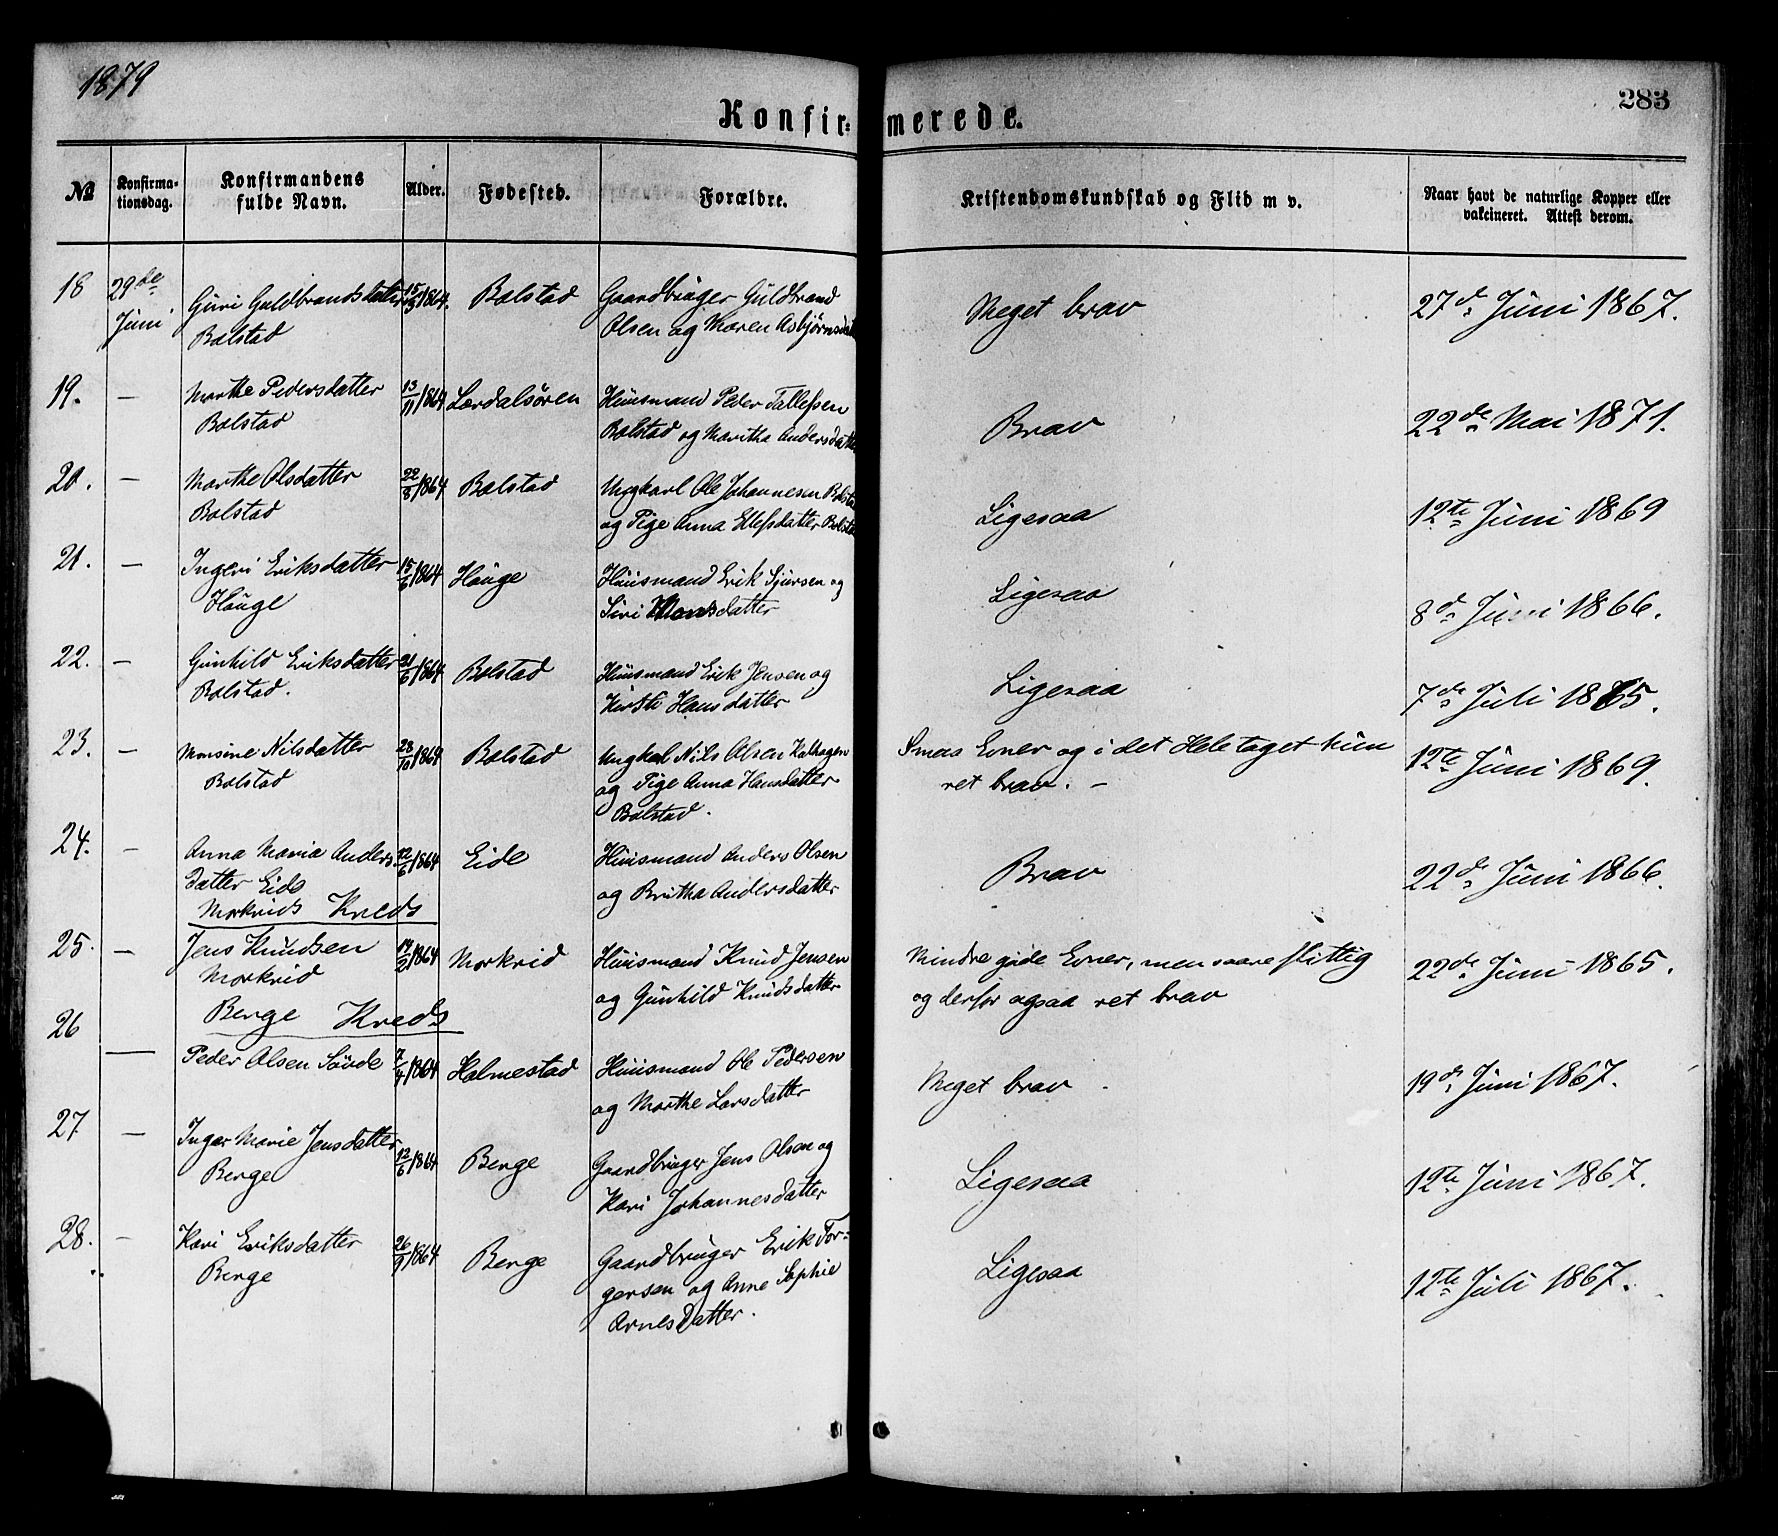 1879
283
Konfir= merede.
No
Konfirma-
tionsdag.
Konfirmandens
fulde Navn.
Alder.
Fødested.
Forældre.
Kristendomskundskab og Flid m v.
Naar havt de naturlige Kopper eller
vakcineret. Attest derom.
18 29de Guri Guldbrandsdatter 15/3 1864. Bolstad Gaardbruger Guldbrand Meget brav 27de Juni 1867.
Juni Bolstad Olsen og Maren Asbjørnsdatter
19. — Marthe Pedersdatter 13/11 1864 Lærdalsøren Huusmand Peder Tallefsen Brav 22de Mai 1871.
Bolstad Bolstad og Maritha Andersdatter
20. — Marthe Olsdatter 22/8 1864 Bolstad Ungkarl Ole Johannesen Bolstad Ligesaa 12te Juni 1869
Bolstad og Pige Anna Ellefsdatter Bolstad
21. — Ingeri Eriksdatter 15/6 1864 Hauge Huusmand Erik Sjursen og Ligesaa 8de Juni 1866.
Hauge Siri Monsdatter
22. — Gunhild Eriksdatter 21/6 1864 Bolstad Huusmand Erik Jensen og Ligesaa 7de Juli 1865.
Bolstad. Hansdatter
23. — Monsine Nilsdatter 28/10 1864 Bolstad Ungkarl Nils Olsen Kalhagen Smaa Evner og i det Hele taget kun 12te Juni 1869.
Bolstad og Pige Anna Hansdatter ret brav. —
Bolstad.
24. — Anna Maria Anders- 12/6 1864 Eide Huusmand Anders Olsen Brav 22de Juni 1866.
datter Eide og Britha Andersdatter
Morkrids Kreds
25. — Jens Knudsen 14/2 1864 Morkrid Huusmand Knud Jensen Mindre gode Evner, men saare flittig 22de Juni 1865.
Morkrid og Gunhild Knudsdatter og derfor ogsaa ret brav
Berge Kreds
26 — Peder Olsen Søvde 7/4 1864 Holmestad Huusmand Ole Pedersen Meget brav 19de Juni 1867.
og Marthe Larsdatter
27 — Inger Marie Jensdatter 12/6 1864 Berge Gaardbruger Jens Olsen og Ligesaa 12te Juni 1867.
Berge Kari Johannesdatter
28. — Kari Eriksdatter 26/9 1864 Berge Gaardbruger Erik Tor- Ligesaa 12te Juli 1867.
Berge gersen og Anne Sophie
Arnesdatter.